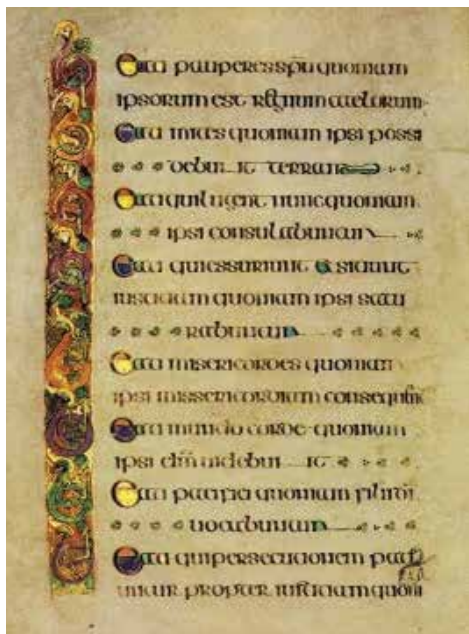 Beati pauperes spu quoniam
ipsorum est regnum caelorum
Beati mites quoniam ipsi possi
debunt terram
Beati qui lugent nunc quoniam
ipsi consulabuntur
Beati qui essuriunt & sitiunt
iustitiam quoniam ipsi satu
rabuntur
Beati misericordes quoniam
ipsi missericordiam
Beati mundo corde quoniam
ipsi dm uidebunt
Beati pacifici quoniam filii di
uocabuntur
Beati qui persecutionem pati
untur propter iustitiam quoni